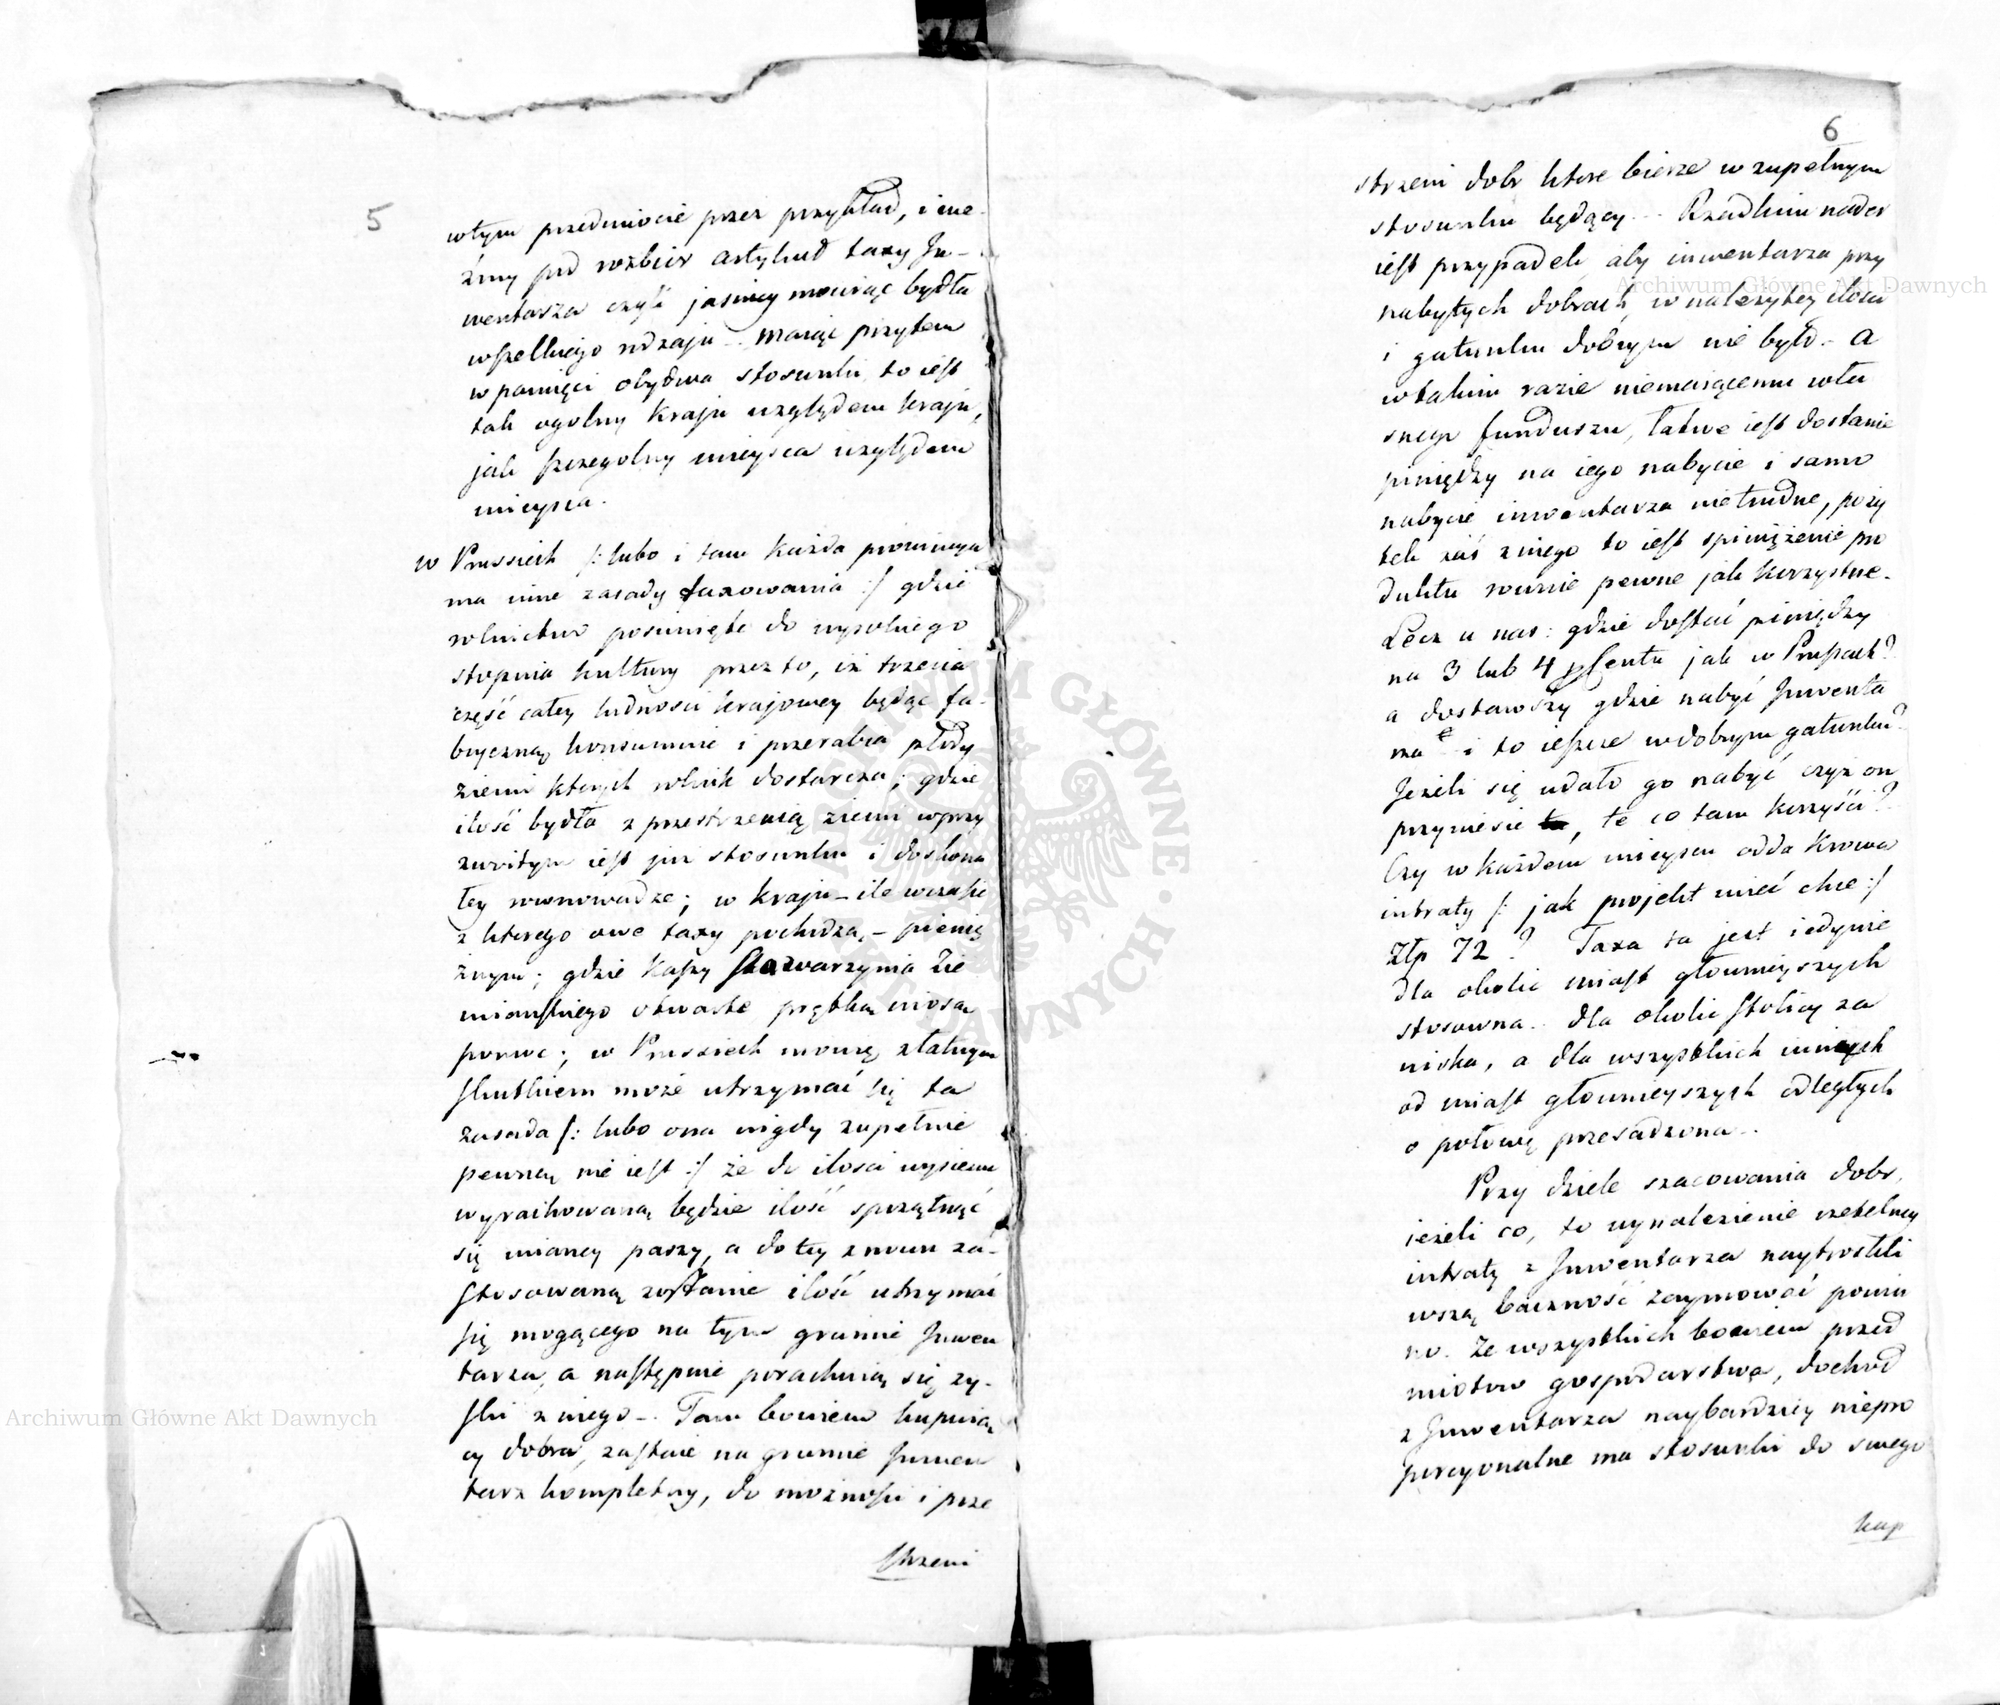 5
wtym przedmiocie przez przykład, i we-
źmy pod rozbior artykuł taxy In-
wentarza czyli jasniey mowiąc bydła
wszelkiego rodzaju - maiąc przytem
w pamięci obydwa stosunki to iest
tak ogolny Kraju względem kraju,
jak szczegolny mieysca względem
mieysca.
w Prussiech /: lubo i tam każda prowincya
ma inne zasady taxowania :/ gdzie
rolnictwo posunięte do wysokiego
stopnia kultury przez to, iż trzecia
część całey ludnosci krajowey będąc fa-
bryczną konsummuie i przerabia płody
ziemi ktorych rolnik dostarcza; gdzie
ilość bydła z przestrzenią ziemi w przy
zwoitym iest już stosunku i doskona
łey rownowadze; w kraju - ile w czasie
z ktorego owe taxy pochodzą, - pienię
żnym; gdzie kassy Stowarzyszenia Zie
mianskiego otwarte prętką niosą
pomoc; w Prusiech mowię, z łatwym
skutkiem może utrzymać się ta
zasada /: lubo ona nigdy zupełnie
pewną nie iest :/ że do ilosci wysiewu
wyrachowaną będzie ilość sprzątnąć
się maney paszy, a do tey znown za-
stosowaną zostanie ilość utrzymać
się mogącego na tym gruncie Inwen
tarza, a następnie porachuią się zy-
ski z niego -. Tam bowiem kupuią
cy dobra, zastaie na gruncie Inwen
tarz kompletny, do możności i prze
strzeni
6
strzeni dobr ktore bierze w zupełnym
stosunku będący -. Rzadkim nader
iest przypadek, aby inwentarza przy
nabytych dobrach, w należytey ilosci
i gatunku dobrym nie było. - a
w takim razie niemaiącemu wła
snego funduszu, łatwe iest dostanie
pieniędzy na iego nabycie i samo
nabycie inwentarza nietrudne, poży
tek zaś z niego to iest spieniężenie pro
duktu rownie pewne jak korzystne.
Lecz u nas: gdzie dostać pieniędzy
na 3 lub 4 pCentu jak w Prusach?
a dostawszy gdzie nabyć Inwenta
rza? i to ieszcze w dobrym gatunku?
Jeżeli się udało go nabyć czyż on
przyniesie te co tam korzyści?
Czy w każdem mieyscu odda Krowa
intraty /: jak projekt mieć chce :/
Złp 72? Taxa ta jest iedynie
dla okolic miast głownieyszych
stosowna -. dla okolic stolicy za
niska, a dla wszystkich innych
od miast głownieyszych odległych
o połowę przesadzona -.
Przy dziele szacowania dobr,
ieżeli co, to wynalezienie rzetelney
intraty z Inwentarza naytroskli
wszą baczność zaymować powin
no. Ze wszystkich bowiem przed
miotow gospodarstwa, dochod
z Inwentarza naybardziey niepro
porcyonalne ma stosunki do swego
kap
Archiwum Główne Akt Dawnych
Archiwum Główne Akt Dawnych
ARCHIWUM GŁÓWNE AKT DAWNYCH